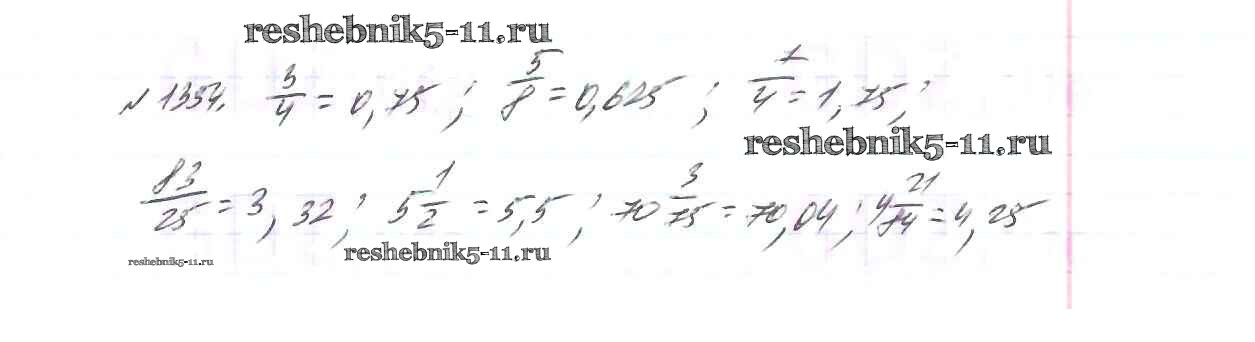 reshebnik5-11.ru
№1354. 3/4 = 0,75 ; 5/8 = 0,625 ; 7/4 = 1,75 ;
reshebnik5-11.ru
83/25 = 3,32 ; 5 1/2 = 5,5 ; 70 3/75 = 70,04 ; 4 21/74 = 4,25
reshebnik5-11.ru
reshebnik5-11.ru